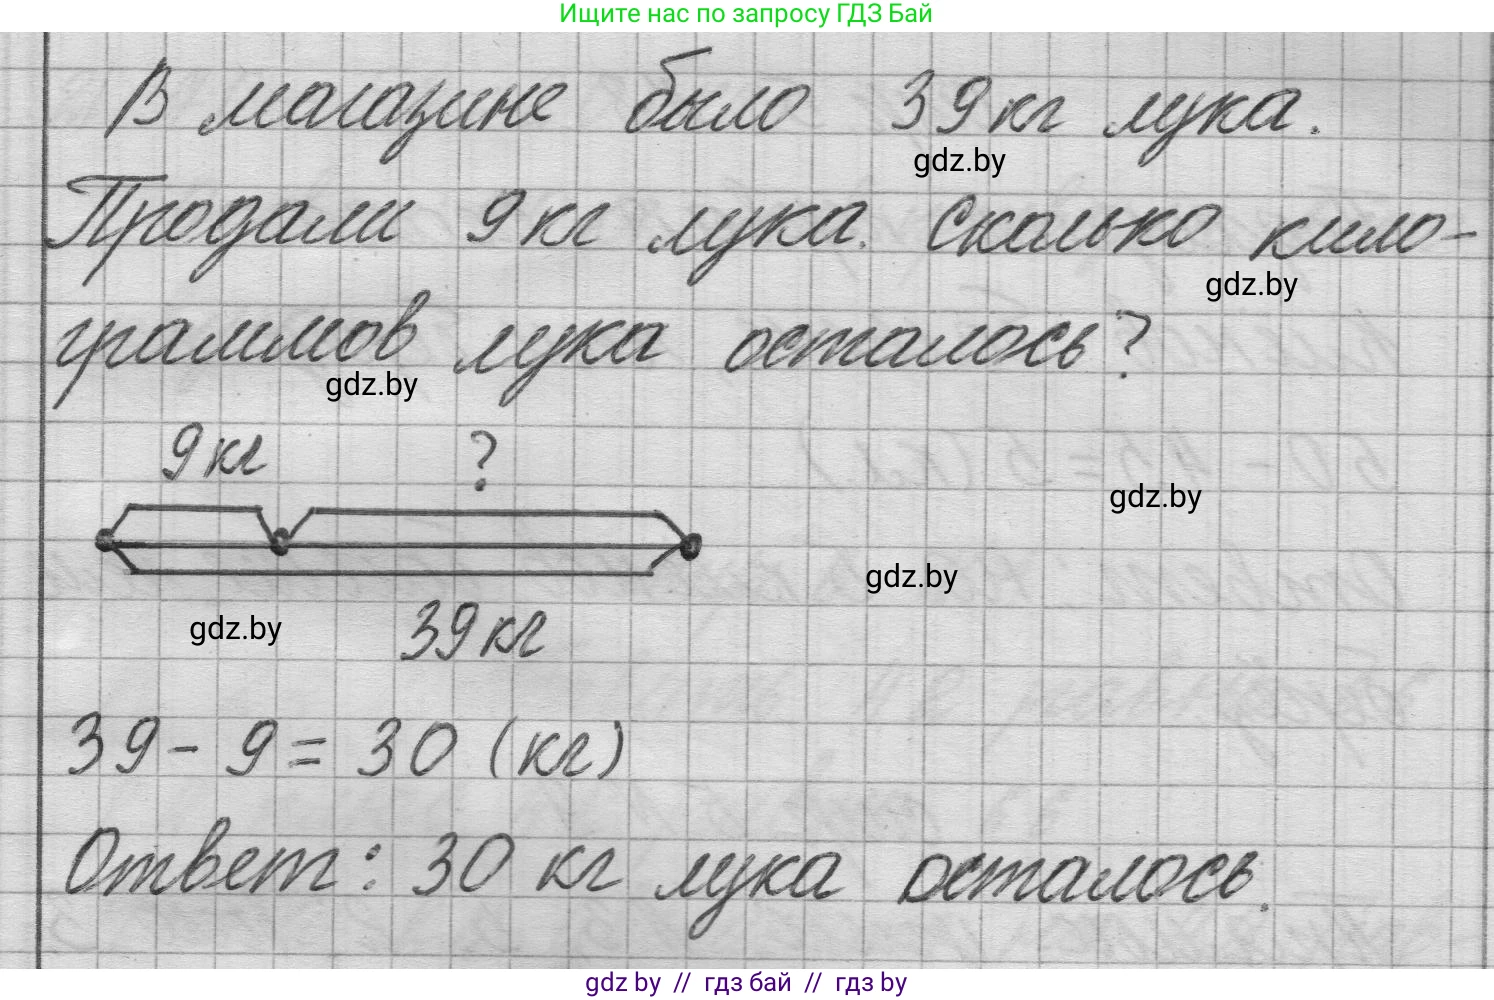 Ищите нас по запросу ГДЗ Бай
В магазине было 39 кг лука.
gdz.by
Продали 9 кг лука. Сколько кило-
gdz.by
граммов лука осталось?
gdz.by
9 кг ?
gdz.by
gdz.by
gdz.by
39 кг
39 - 9 = 30 (кг)
Ответ: 30 кг лука осталось.
gdz.by // гдз бай // гдз by